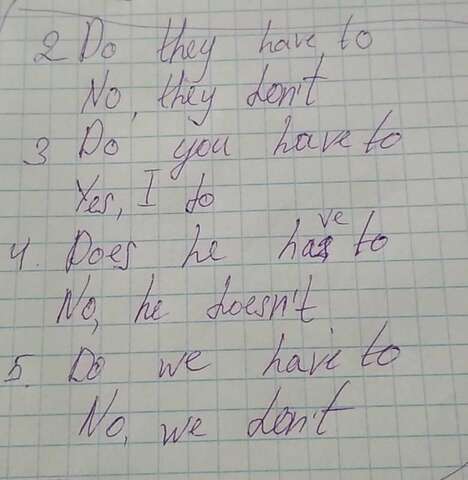 2 Do they have to
No, they don't
3 Do you have to
Yes, I do
4. Does he have to
No, he doesn't
5. Do we have to
No, we don't